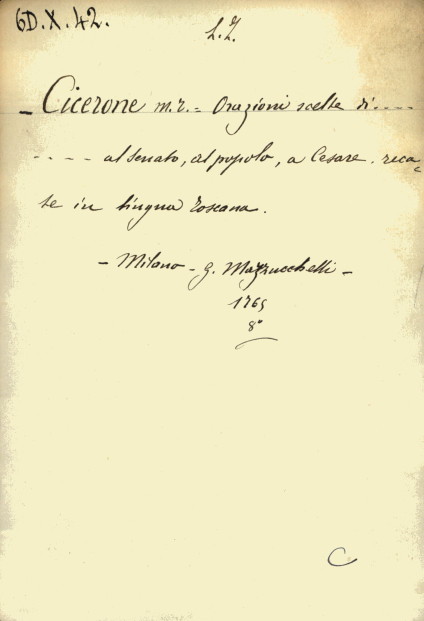 6D.X.42.
L.I.
- Cicerone m.t. = Orazioni scelte di ....
- - - - al senato, al popolo, a Cesare. reca-
te in lingua toscana.
- Milano - G. Mazzucchelli -
1765
8°
C